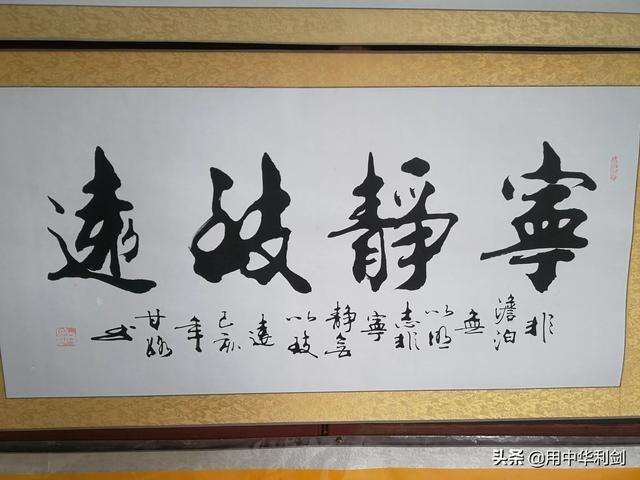 寧靜致遠
非澹泊無以明志非寧靜無以致遠己亥年甘书
头条 @用中华利剑